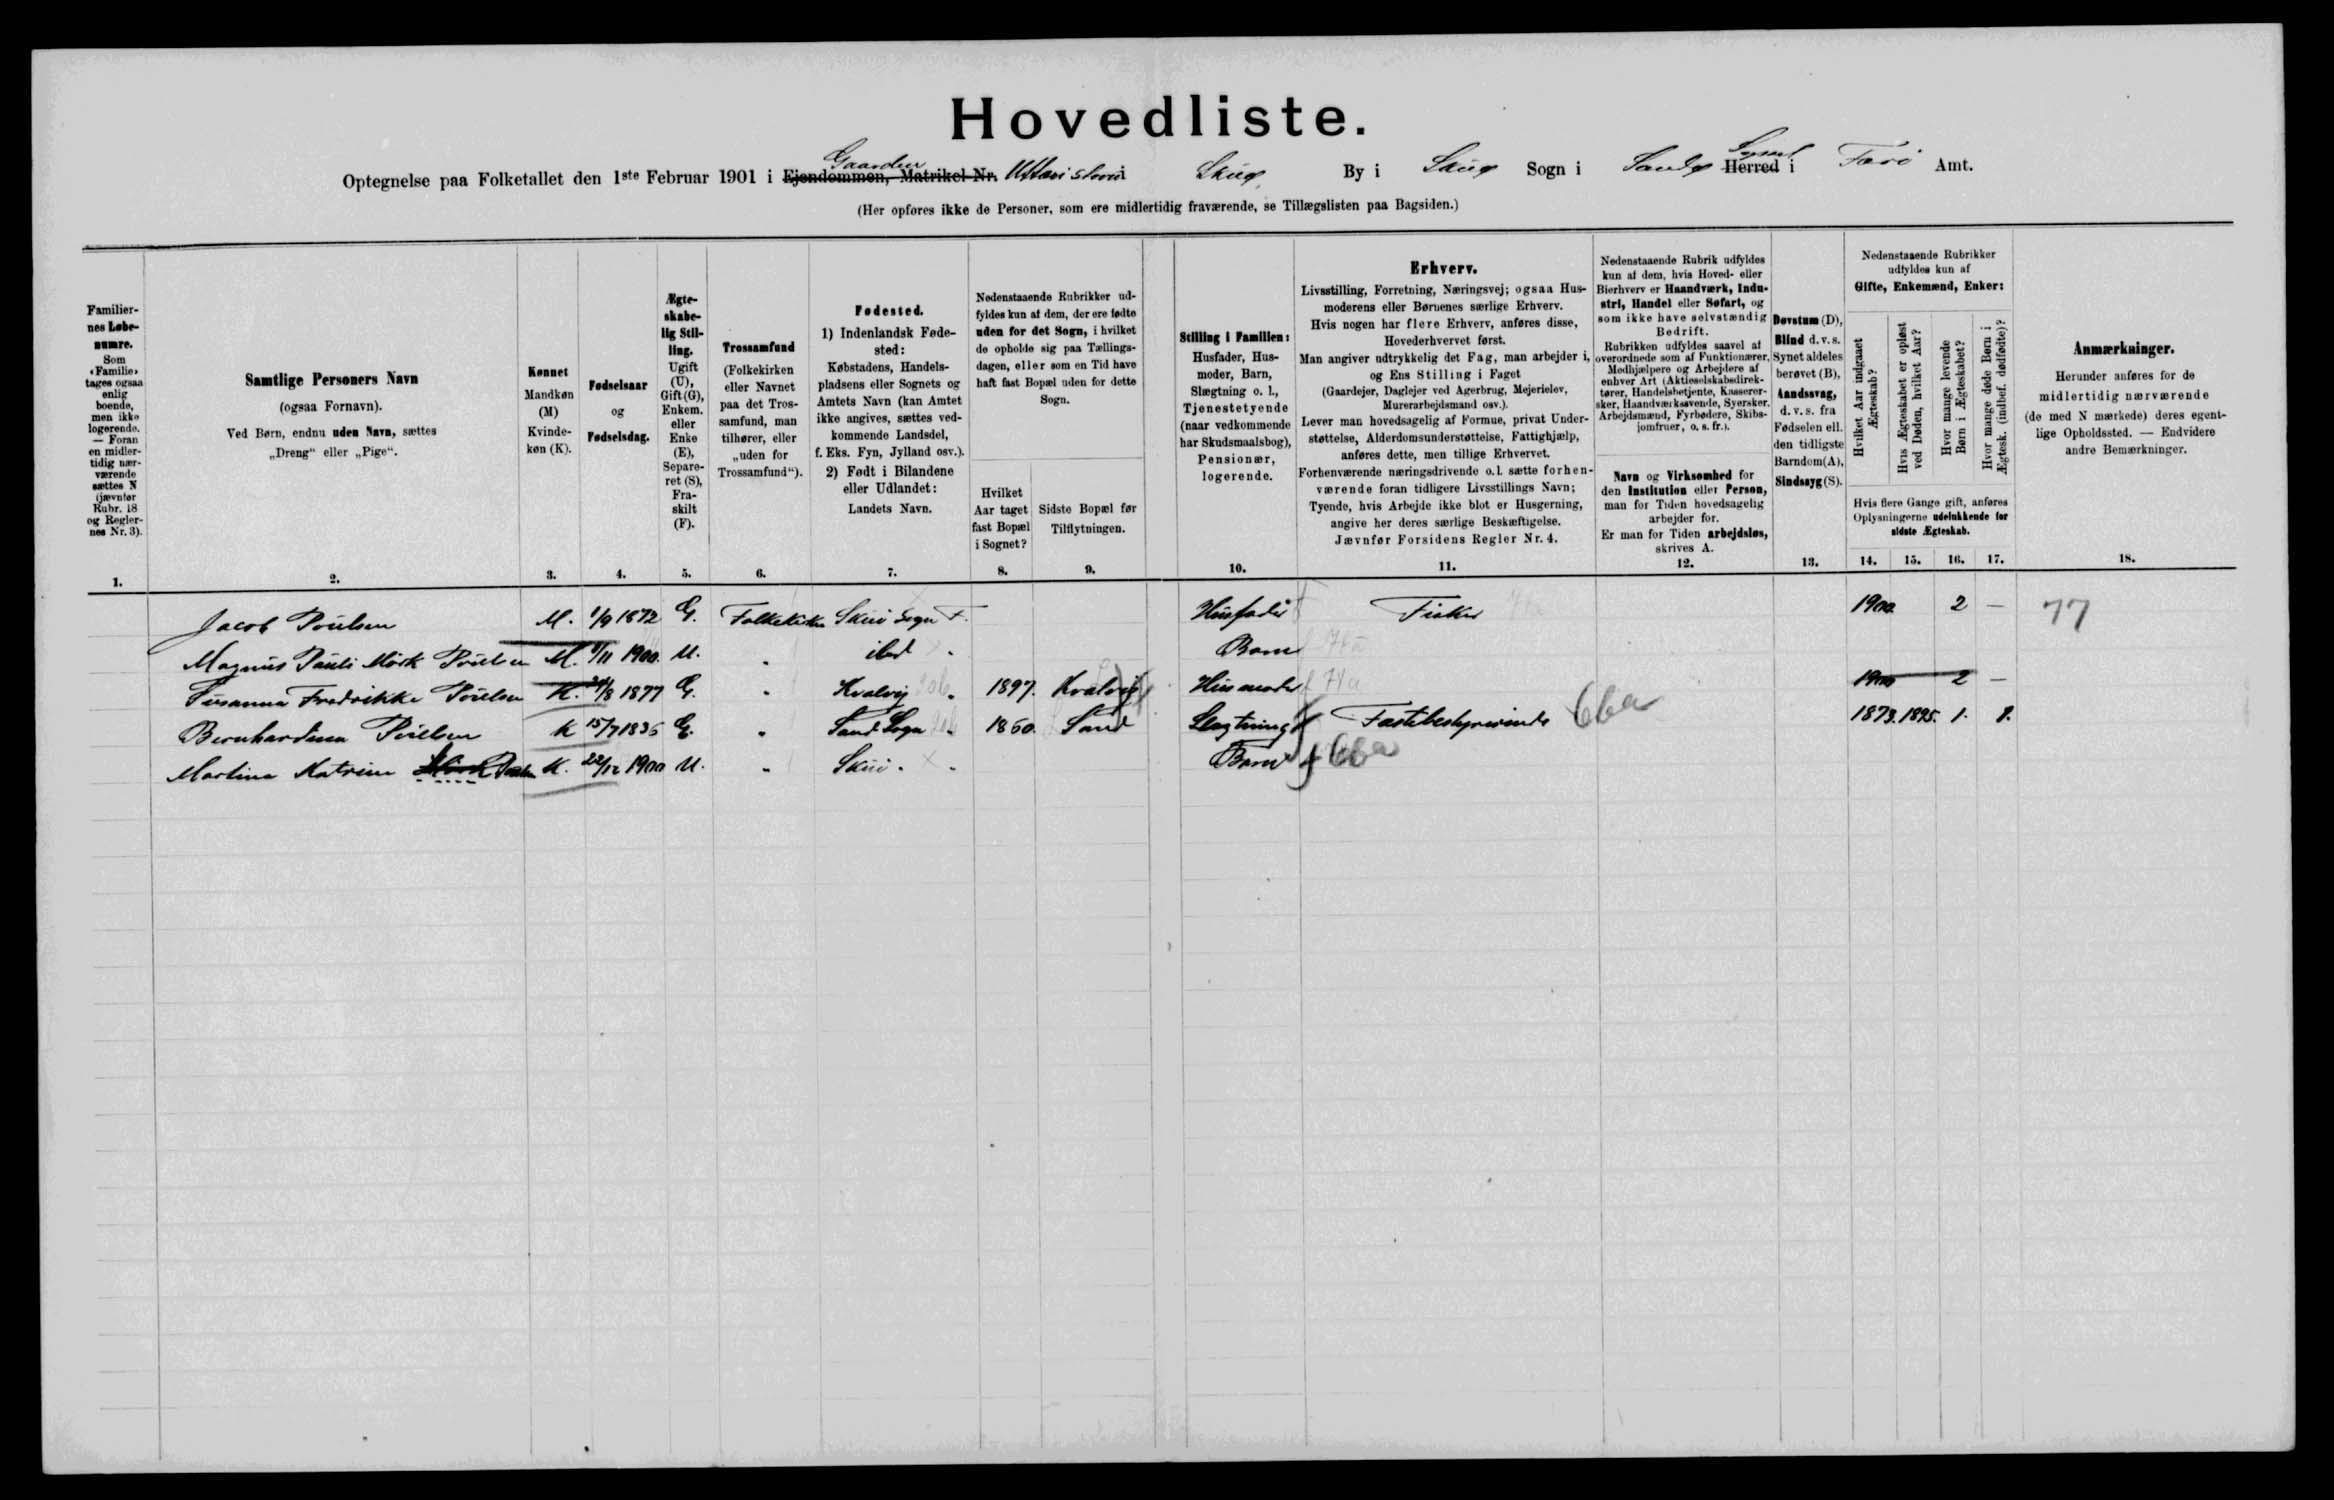 Hovedliste.
Optegnelse paa Folketallet den 1ste Februar 1901 i Ejendommen, Matrikel-Nr. Gaarden i Skuø By i Skuø Sogn i Sandø Herred Syssel i Færö Amt.
(Her opføres ikke de Personer, som ere midlertidig fraværende, se Tillægslisten paa Bagsiden.)
Familiernes Løbenumre. Som «Familie» tages ogsaa enlig boende, men ikke logerende. — Foran en midlertidig nærværende sættes N (jævnfør Rubr. 18 og Reglernes Nr. 3).
Samtlige Personers Navn (ogsaa Fornavn). Ved Børn, endnu uden Navn, sættes „Dreng“ eller „Pige“.
Kønnet Mandkøn (M) Kvindekøn (K).
Fødselsaar og Fødselsdag.
Ægteskabelig Stilling. Ugift (U), Gift (G), Enkem. eller Enke (E), Separeret (S), Fraskilt (F).
Trossamfund (Folkekirken eller Navnet paa det Trossamfund, man tilhører, eller „uden for Trossamfund“).
Fødested. 1) Indenlandsk Fødested: Købstadens, Handelspladsens eller Sognets og Amtets Navn (kan Amtet ikke angives, sættes vedkommende Landsdel, f. Eks. Fyn, Jylland osv.). 2) Født i Bilandene eller Udlandet: Landets Navn.
Nedenstaaende Rubrikker udfyldes kun af dem, der ere fødte uden for det Sogn, i hvilket de opholde sig paa Tællingsdagen, eller som en Tid have haft fast Bopæl uden for dette Sogn.
Hvilket Aar taget fast Bopæl i Sognet?
Sidste Bopæl før Tilflytningen.
Stilling i Familien: Husfader, Husmoder, Barn, Slægtning o. l., Tjenestetyende (naar vedkommende har Skudsmaalsbog), Pensionær, logerende.
Erhverv.
Livsstilling, Forretning, Næringsvej; ogsaa Husmoderens eller Børnenes særlige Erhverv.
Hvis nogen har flere Erhverv, anføres disse, Hovederhvervet først.
Man angiver udtrykkelig det Fag, man arbejder i, og Ens Stilling i Faget
(Gaardejer, Daglejer ved Agerbrug, Mejerielev, Murerarbejdsmand osv.).
Lever man hovedsagelig af Formue, privat Understøttelse, Alderdomsunderstøttelse, Fattighjælp, anføres dette, men tillige Erhvervet.
Forhenværende næringsdrivende o. l. sætte forhenværende foran tidligere Livsstillings Navn;
Tyende, hvis Arbejde ikke blot er Husgerning, angive her deres særlige Beskæftigelse.
Jævnfør Forsidens Regler Nr. 4.
Nedenstaaende Rubrik udfyldes kun af dem, hvis Hoved- eller Bierhverv er Haandværk, Industri, Handel eller Søfart, og som ikke have selvstændig Bedrift.
Rubrikken udfyldes saavel af overordnede som af Funktionærer, Medhjælpere og Arbejdere af enhver Art (Aktieselskabsdirektører, Handelsbetjente, Kasserersker, Haandværkssvende, Syersker, Arbejdsmænd, Fyrbødere, Skibsjomfruer, o. s. fr.).
Navn og Virksomhed for den Institution eller Person, man for Tiden hovedsagelig arbejder for.
Er man for Tiden arbejdsløs, skrives A.
Døvstum (D), Blind d. v. s. Synet aldeles berøvet (B), Aandssvag, d. v. s. fra Fødselen ell. den tidligste Barndom (A), Sindssyg (S).
Nedenstaaende Rubrikker udfyldes kun af Gifte, Enkemænd, Enker:
Hvilket Aar indgaaet Ægteskab?
Hvis Ægteskabet er opløst ved Døden, hvilket Aar?
Hvor mange levende Børn i Ægteskabet?
Hvor mange døde Børn i Ægtesk. (indbef. dødfødte)?
Hvis flere Gange gift, anføres Oplysningerne udelukkende for sidste Ægteskab.
Anmærkninger.
Herunder anføres for de midlertidig nærværende (de med N mærkede) deres egentlige Opholdssted. — Endvidere andre Bemærkninger.
1. 2. 3. 4. 5. 6. 7. 8. 9. 10. 11. 12. 13. 14. 15. 16. 17. 18.
Jacob Poulsen M. 1/9 1872 G. Folkekirken Skuö Sogn F. Husfader Fisker 1900 2 — 77
Magnus Pauli Mörk Poulsen M. /11 1900. U. " ibd " Barn
Susanna Fredrikke Poulsen K. /8 1877 G. " Kvalvig " 1897. Kvalvig Husmoder 1900 2 —
Bernhardina Poulsen K 15/7 1835 G. " Sand Sogn " 1860. Sand Slægtning Fæstebestyrerinde 66a 1873. 1895. 1. 1.
Martina Katrine Mörk Poulsen K. 22/12 1900 U. " Skuö. " Barn 66a